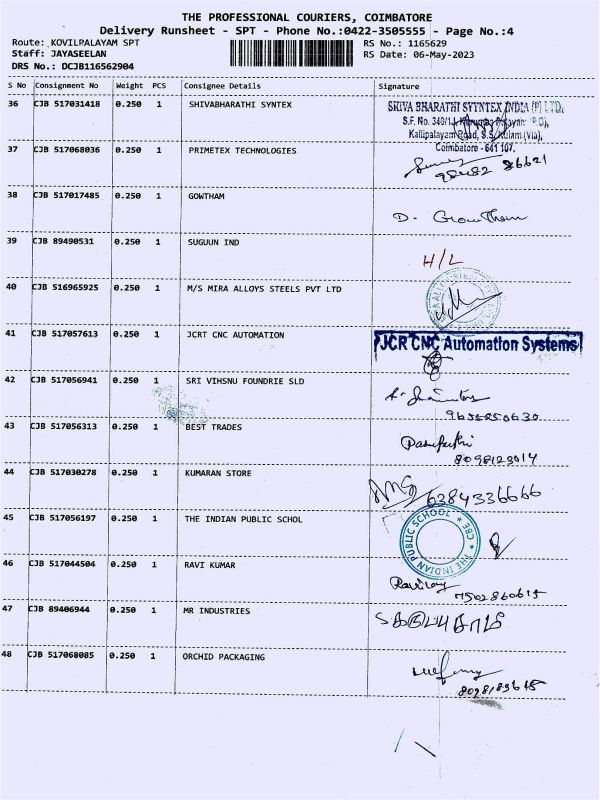 THE PROFESSIONAL COURIERS, COIMBATORE
Delivery Runsheet - SPT - Phone No.:0422-3505555 - Page No.:4
Route: KOVILPALAYAM SPT
RS No.: 1165629
Staff: JAYASEELAN
RS Date: 06-May-2023
DRS No.: DCJB116562904
S No Consignment No Weight PCS Consignee Details Signature
36 CJB 517031418 0.250 1 SHIVABHARATHI SYNTEX
SHIVA BHARATHI SYNTEX INDIA (P) LTD,
S.F. No. 349/1,
Kallipalayam Road, S.S. Kulam (Via),
Coimbatore - 641 107.
37 CJB 517068036 0.250 1 PRIMETEX TECHNOLOGIES
98482 86621
38 CJB 517017485 0.250 1 GOWTHAM
D. Gowtham
39 CJB 89490531 0.250 1 SUGUUN IND
H/L
40 CJB 516965925 0.250 1 M/S MIRA ALLOYS STEELS PVT LTD
41 CJB 517057613 0.250 1 JCRT CNC AUTOMATION
JCR CNC Automation Systems
42 CJB 517056941 0.250 1 SRI VIHSNU FOUNDRIE SLD
43 CJB 517056313 0.250 1 BEST TRADES
8098123014
44 CJB 517030278 0.250 1 KUMARAN STORE
6384336666
45 CJB 517056197 0.250 1 THE INDIAN PUBLIC SCHOL
THE INDIAN PUBLIC SCHOOL * CBE *
46 CJB 517044504 0.250 1 RAVI KUMAR
7502860615
47 CJB 89406944 0.250 1 MR INDUSTRIES
48 CJB 517068085 0.250 1 ORCHID PACKAGING